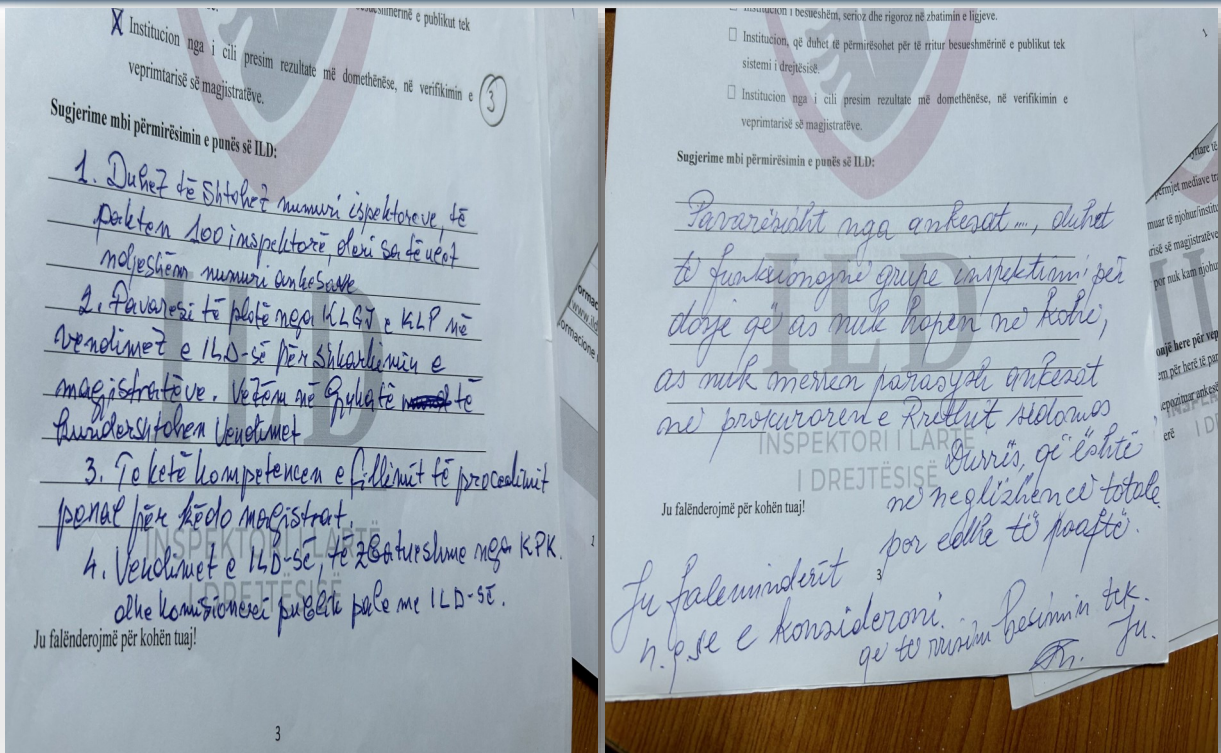 besueshmërinë e publikut tek
X Institucion nga i cili presim rezultate më domethënëse, në verifikimin e
veprimtarisë së magjistratëve.
3
Sugjerime mbi përmirësimin e punës së ILD:
1. Duhet të shtohet numuri ispektoreve, të
pakten 100 inspektorë, deri sa të ulet
ndjeshëm numuri ankesave
2. Pavaresi të plotë nga KLGJ e KLP në
vendimet e ILD-së për shkarkimin e
magjistratëve. Vetëm në Gjykatë të
kundershtohen vendimet
3. Te ketë kompetencen e fillimit të procedimit
penal për këdo magjistrat.
4. Vendimet e ILD-së, të zbatueshme nga KPK.
dhe komisioneri publik pale me ILD-së.
ILD
INSPEKTORI I LARTË
I DREJTËSISË
Ju falënderojmë për kohën tuaj!
3
ormac
www.ild
ormacione
1
Institucion i besueshëm, serioz dhe rigoroz në zbatimin e ligjeve.
Institucion, që duhet të përmirësohet për të rritur besueshmërinë e publikut tek
sistemi i drejtësisë.
Institucion nga i cili presim rezultate më domethënëse, në verifikimin e
veprimtarisë së magjistratëve.
Sugjerime mbi përmirësimin e punës së ILD:
Pavarësisht nga ankesat ...., duhet
të funksionojnë grupe inspektimi për
dosje që as nuk hapen në kohë,
as nuk merren parasysh ankesat
në prokurorenë e Rrethit sidomos
Durrës, që është
në neglizhencë totale
por edhe të paaftë.
ILD
INSPEKTORI I LARTË
I DREJTËSISË
Ju falënderojmë për kohën tuaj!
3
Ju faleminderit
n.q.se e konsideroni.
që të rrisim besimin tek
Ju.
1
permjet mediave tr
muar të njohur/institu
risë së magjistratëve
por nuk kam njohu
onjë here për vep
em për herë të par
epozituar ankesë
erë